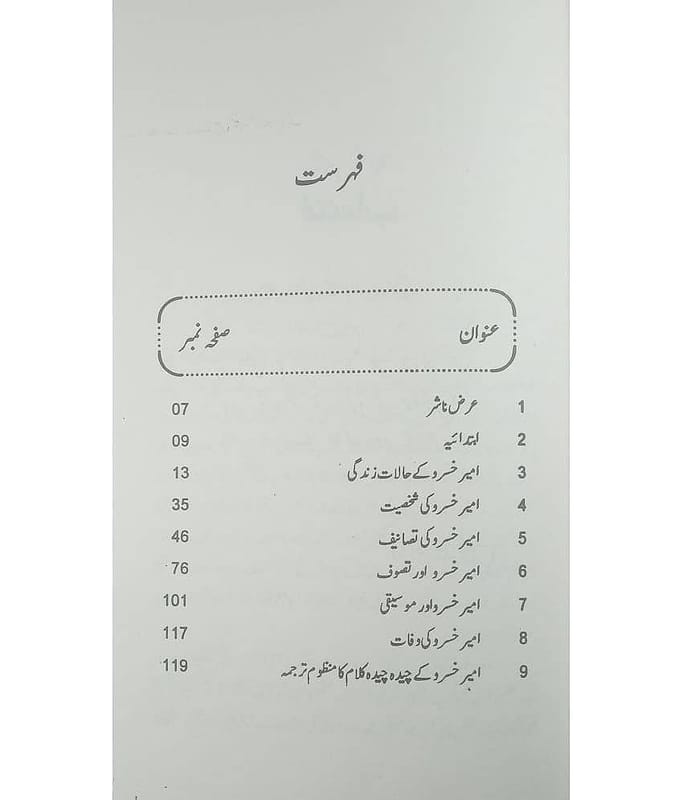 فہرست
عنوان صفحہ نمبر
1 عرض ناشر 07
2 ابتدائیہ 09
3 امیر خسرو کے حالات زندگی 13
4 امیر خسرو کی شخصیت 35
5 امیر خسرو کی تصانیف 46
6 امیر خسرو اور تصوف 76
7 امیر خسرو اور موسیقی 101
8 امیر خسرو کی وفات 117
9 امیر خسرو کے چیدہ چیدہ کلام کا منظوم ترجمہ 119